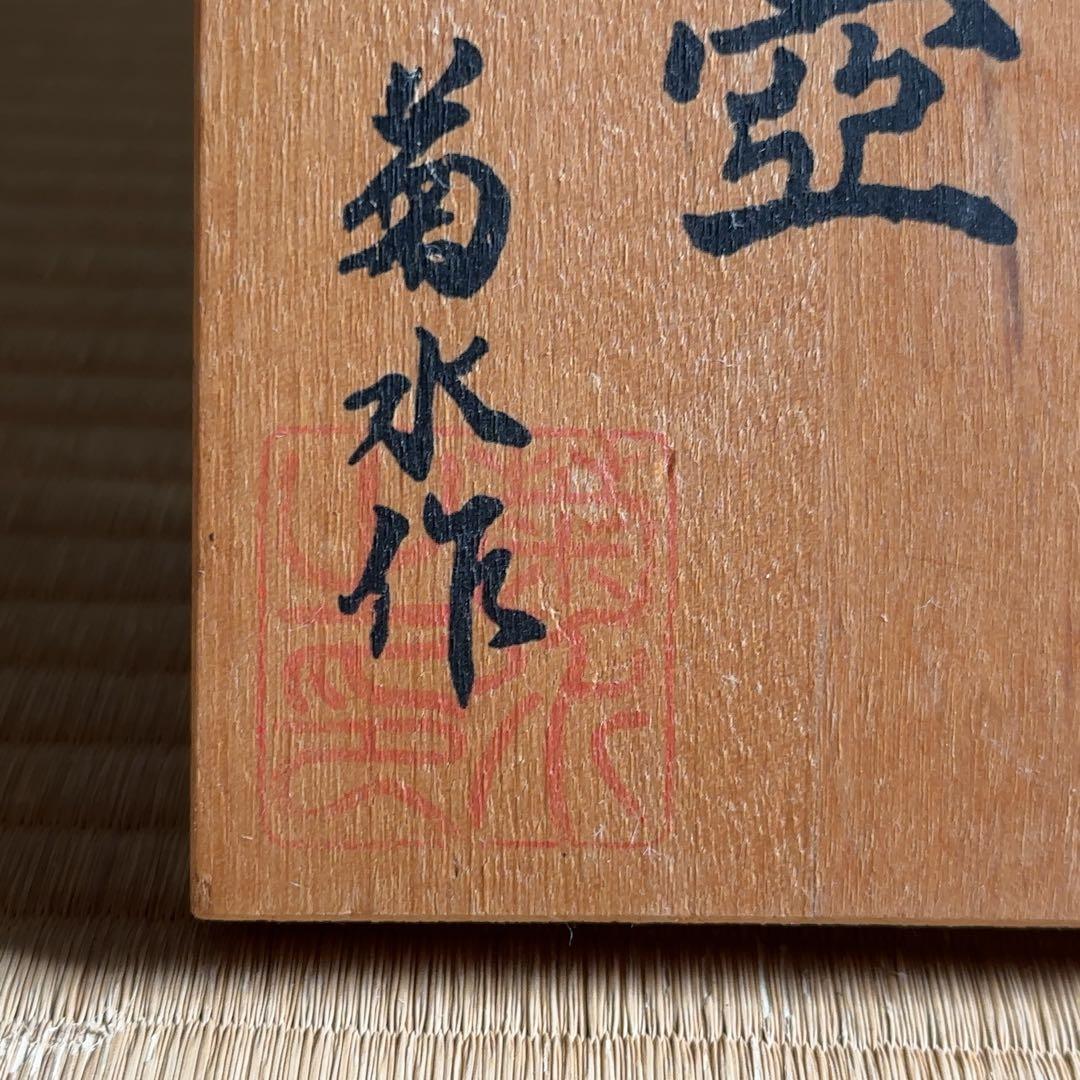 壺
菊水作